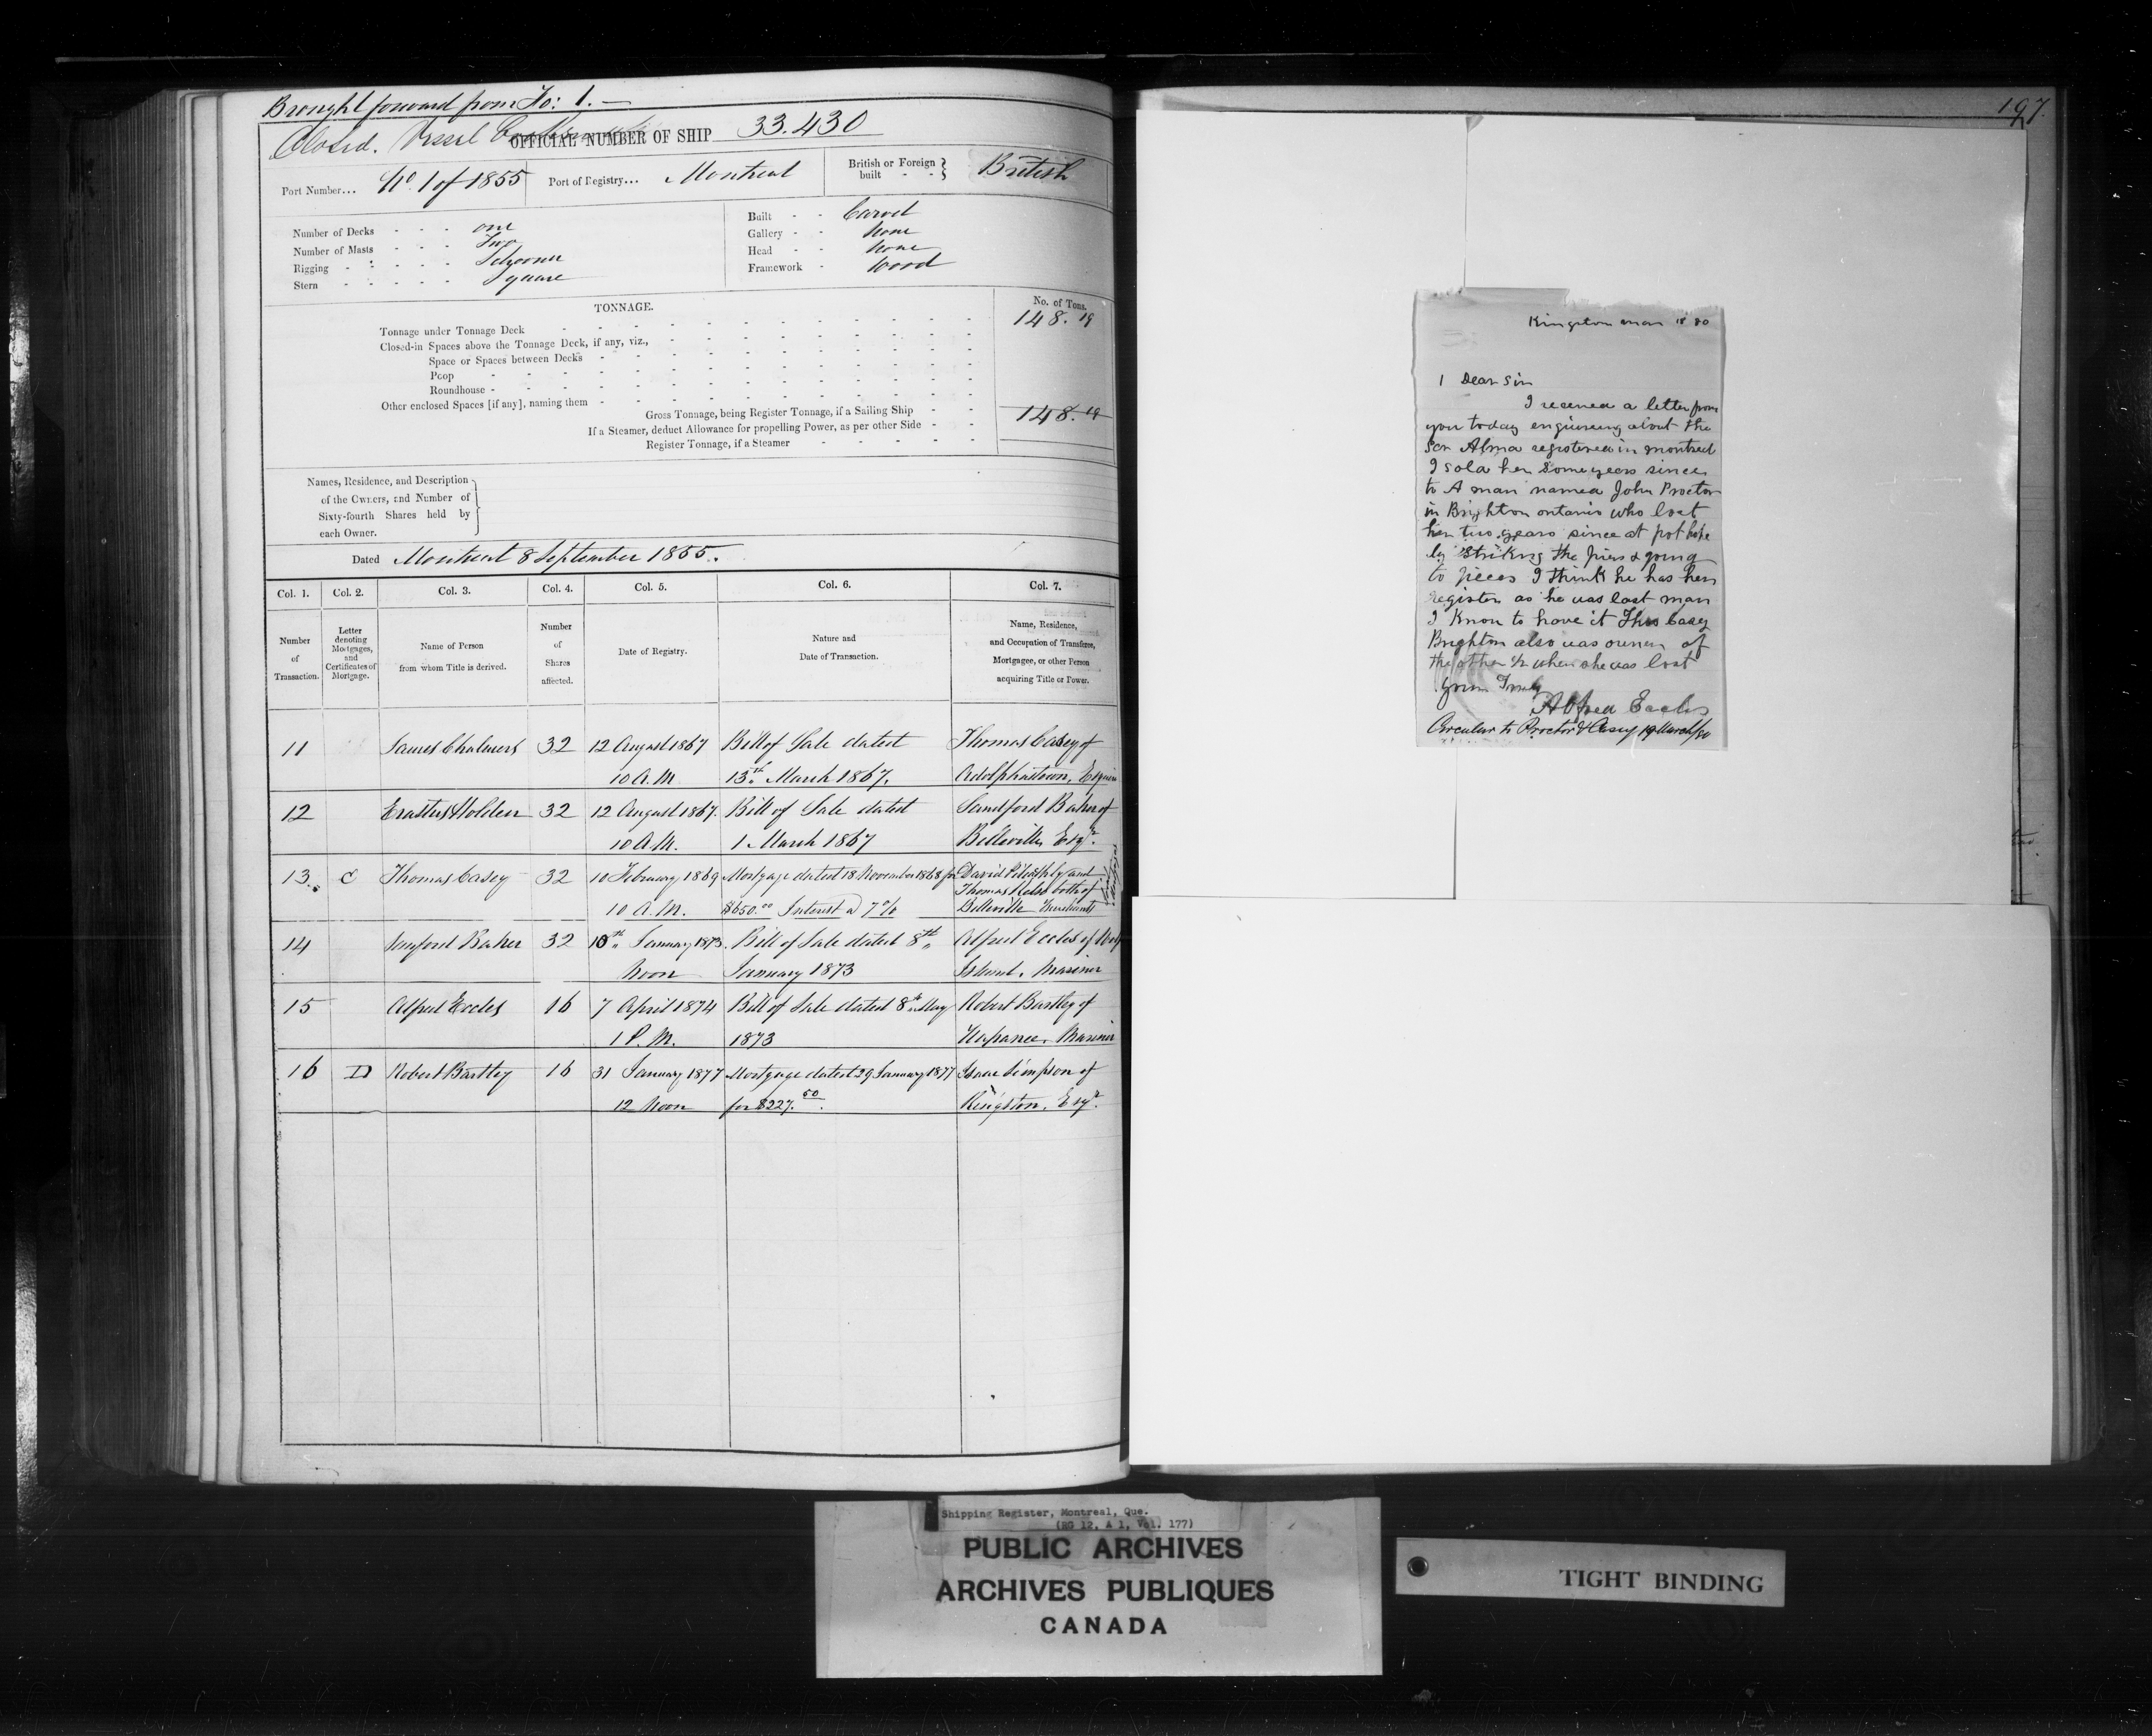 Brought forward from Fo: 1. —
Closed. Vessel
OFFICIAL NUMBER OF SHIP 33.430
Port Number... No. 1 of 1855 Port of Registry... Montreal British or Foreign built - - British
Number of Decks - - - one
Number of Masts - - - Two
Rigging - - - - - Schooner
Stern - - - - - Square
Built - - Carvel
Gallery - - None
Head - - None
Framework - Wood
TONNAGE.
No. of Tons.
Tonnage under Tonnage Deck 148.19
Closed-in Spaces above the Tonnage Deck, if any, viz.,
Space or Spaces between Decks
Poop
Roundhouse
Other enclosed Spaces [if any], naming them
Gross Tonnage, being Register Tonnage, if a Sailing Ship 148.19
If a Steamer, deduct Allowance for propelling Power, as per other Side
Register Tonnage, if a Steamer
Names, Residence, and Description
of the Owners, and Number of
Sixty-fourth Shares held by
each Owner.
Dated Montreal 8 September 1855.
Col. 1. Col. 2. Col. 3. Col. 4. Col. 5. Col. 6. Col. 7.
Number of Transaction.
Letter denoting Mortgages, and Certificates of Mortgage.
Name of Person from whom Title is derived.
Number of Shares affected.
Date of Registry.
Nature and Date of Transaction.
Name, Residence, and Occupation of Transferee, Mortgagee, or other Person acquiring Title or Power.
11 James Chalmers 32 12 August 1867 Bill of Sale dated Thomas Casey of
10 A.M. 13th March 1867. Adolphustown, Esquire
12 Erastus Holden 32 12 August 1867. Bill of Sale dated Sandford Baker of
10 A.M. 1 March 1867 Belleville Esqr.
13. C Thomas Casey 32 10 February 1869 Mortgage dated 18 November 1868 for David Pitceathly and
Thomas Kelso both of
10 A.M. $650.00 Interest @ 7% Belleville Merchants
14 Sanford Baker 32 10th January 1873. Bill of Sale dated 8th Alfred Eccles of Wolf
Noon January 1873 Island. Mariner
15 Alfred Eccles 16 7 April 1874 Bill of Sale dated 8th May Robert Bartley of
1 P.M. 1873 Napanee. Mariner
16 D Robert Bartley 16 31 January 1877 Mortgage dated 29 January 1877 Isaac Simpson of
12 Noon for $227.50. Kingston, Esqr.
197.
Kingston mar 18 80
Dear Sir
I receved a letter from
you today enquireing about the
Scr Alma registered in montreal
I sold her some years since
to A man named John Proctor
in Brighton ontario who lost
her two years since at port hope
by Striking the piers & going
to pieces I think he has her
register as he was last man
I Know to have it Thos Casey
Brighton also was owner of
the other 1/2 when she was lost
yours Truly
Alfred Eccles
Circular to Proctor & Casey 19 March/80
Shipping Register, Montreal, Que.
(RG 12, A 1, Vol. 177)
PUBLIC ARCHIVES
ARCHIVES PUBLIQUES
CANADA
TIGHT BINDING